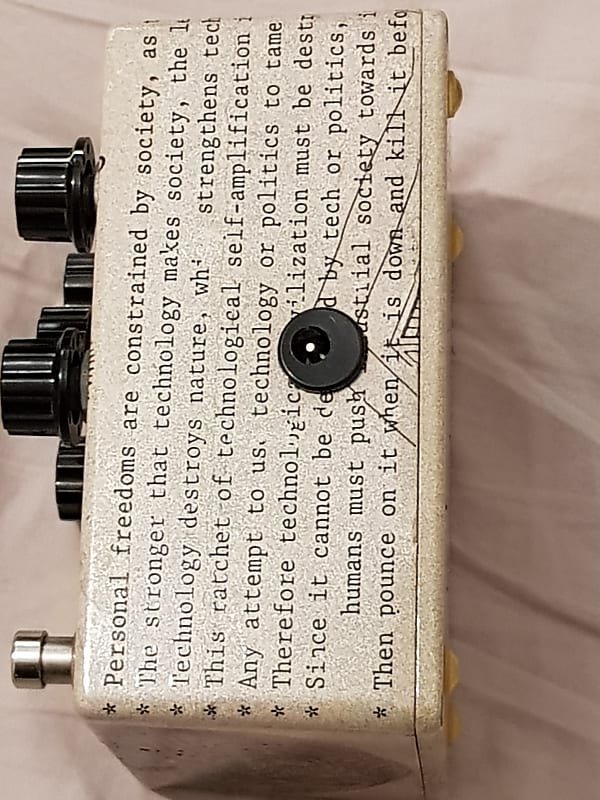 * Personal freedoms are constrained by society, as
* The stronger that technology makes society, the
* Technology destroys nature, strengthens
* This ratchet of technological self-amplification
* Any attempt to us technology or politics to tame
* Therefore must be
* Since it cannot be by tech or politics,
humans must push society towards
* Then pounce on it when it is down and kill it